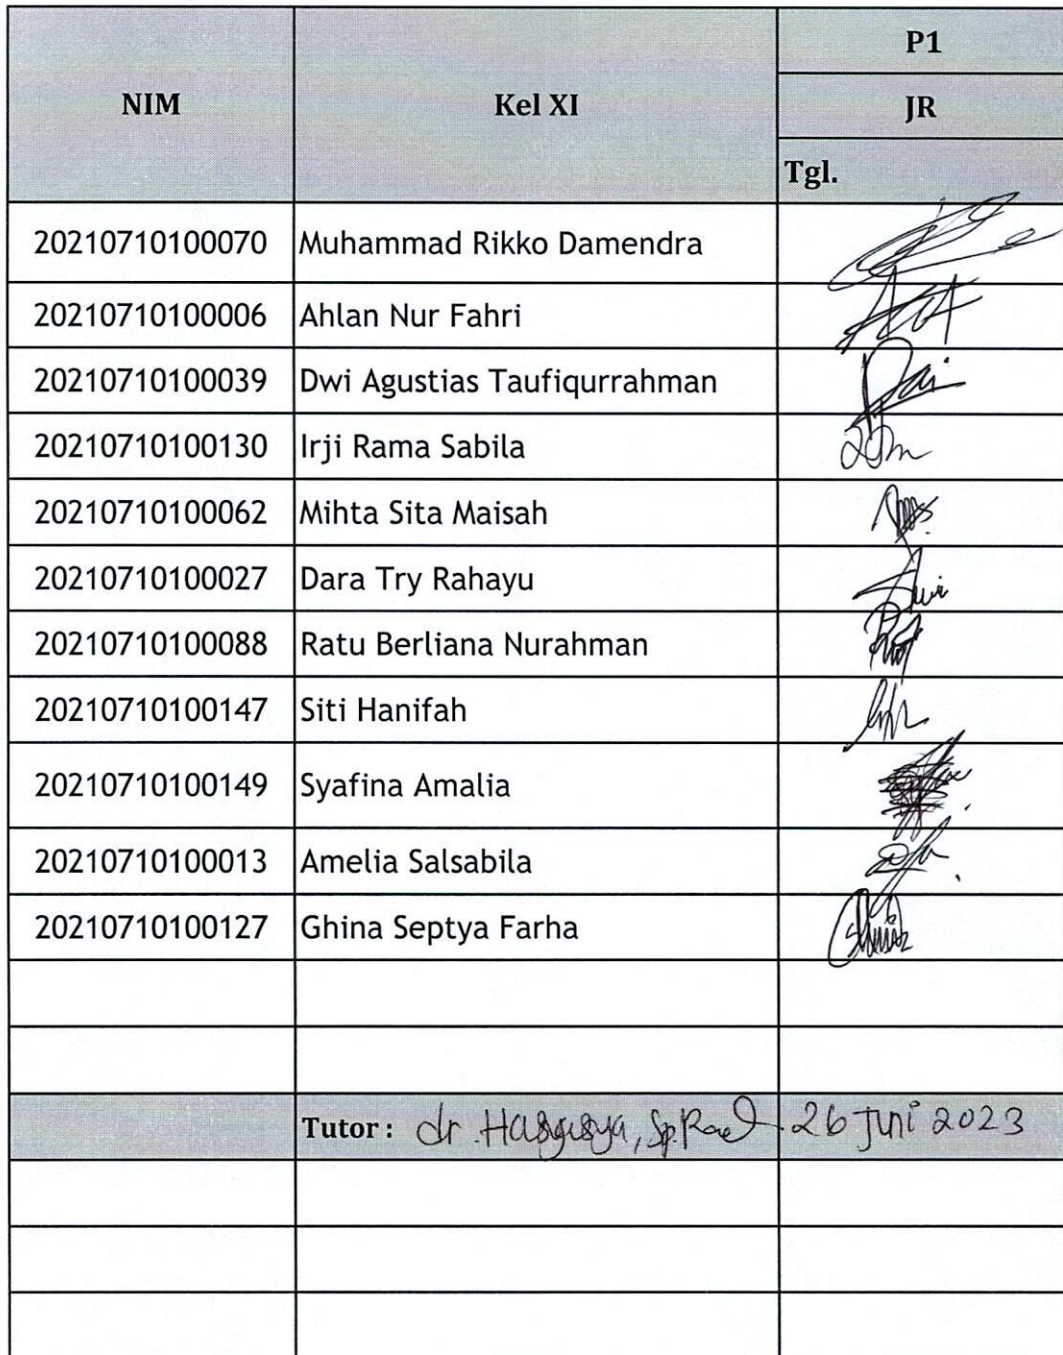 P1
NIM Kel XI JR
Tgl.
20210710100070 Muhammad Rikko Damendra
20210710100006 Ahlan Nur Fahri
20210710100039 Dwi Agustias Taufiqurrahman
20210710100130 Irji Rama Sabila
20210710100062 Mihta Sita Maisah
20210710100027 Dara Try Rahayu
20210710100088 Ratu Berliana Nurahman
20210710100147 Siti Hanifah
20210710100149 Syafina Amalia
20210710100013 Amelia Salsabila
20210710100127 Ghina Septya Farha
Tutor : dr. Sp.Rad 26 Juni 2023